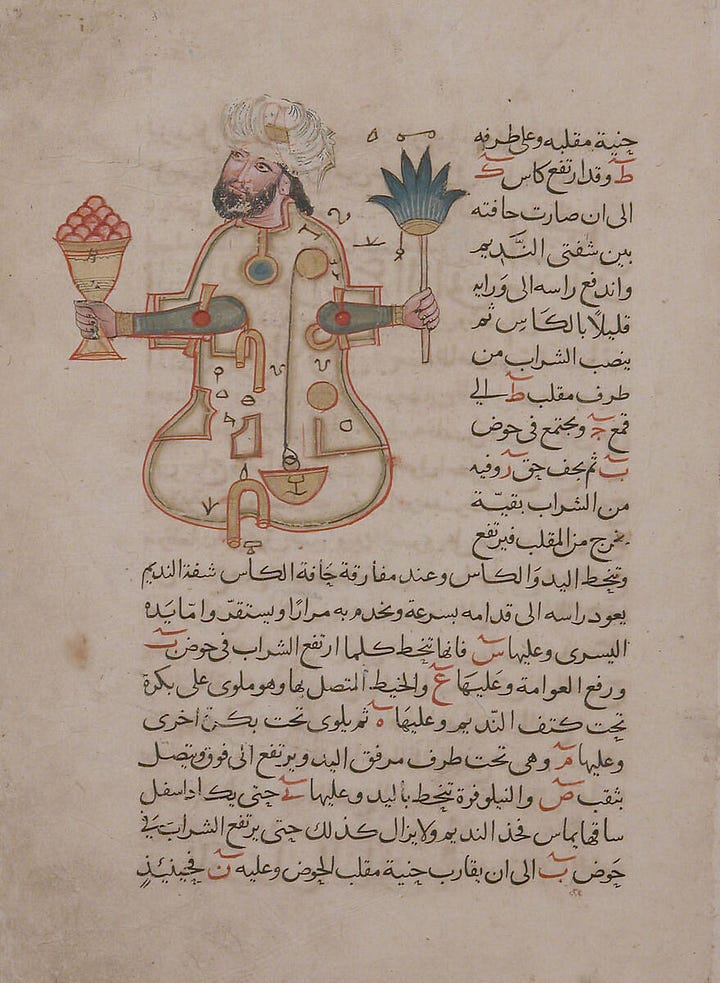 جنية مقلبه وعلى طرفه
ط وقد ارتفع كاس ك
الى ان صارت حافته
بين شفتي النديم
واندفع راسه الى ورايه
قليلاً بالكاس ثم
ينصب الشراب من
طرف مقلب ط الى
قمع ج ويجتمع في حوض
ب ثم يجف حق ر وفيه
من الشراب بقية
يخرج من المقلب فيرتفع
وتنحط اليد والكاس وعند مفارقة حافة الكاس شفة النديم
يعود راسه الى قدامه بسرعة ويخدم به مرارًا ويستقر واما يده
اليسرى وعليها س فانها تنحط كلما ارتفع الشراب في حوض ب
ورفع العوامة وعليها ع والخيط المتصل بها وهو ملوى على بكرة
تحت كتف النديم وعليها ه ثم يلوى تحت بكرة اخرى
وعليها م وهي تحت طرف مرفق اليد ويرتفع الى فوق ويتصل
بثقب ص والنيلوفرة تنحط باليد وعليها حتى يكاد اسفل
ساقها يماس فخذ النديم ولا يزال كذلك حتى يرتفع الشراب في
حوض ب الى ان يقارب جنية مقلب الحوض وعليه ن فحينيذ